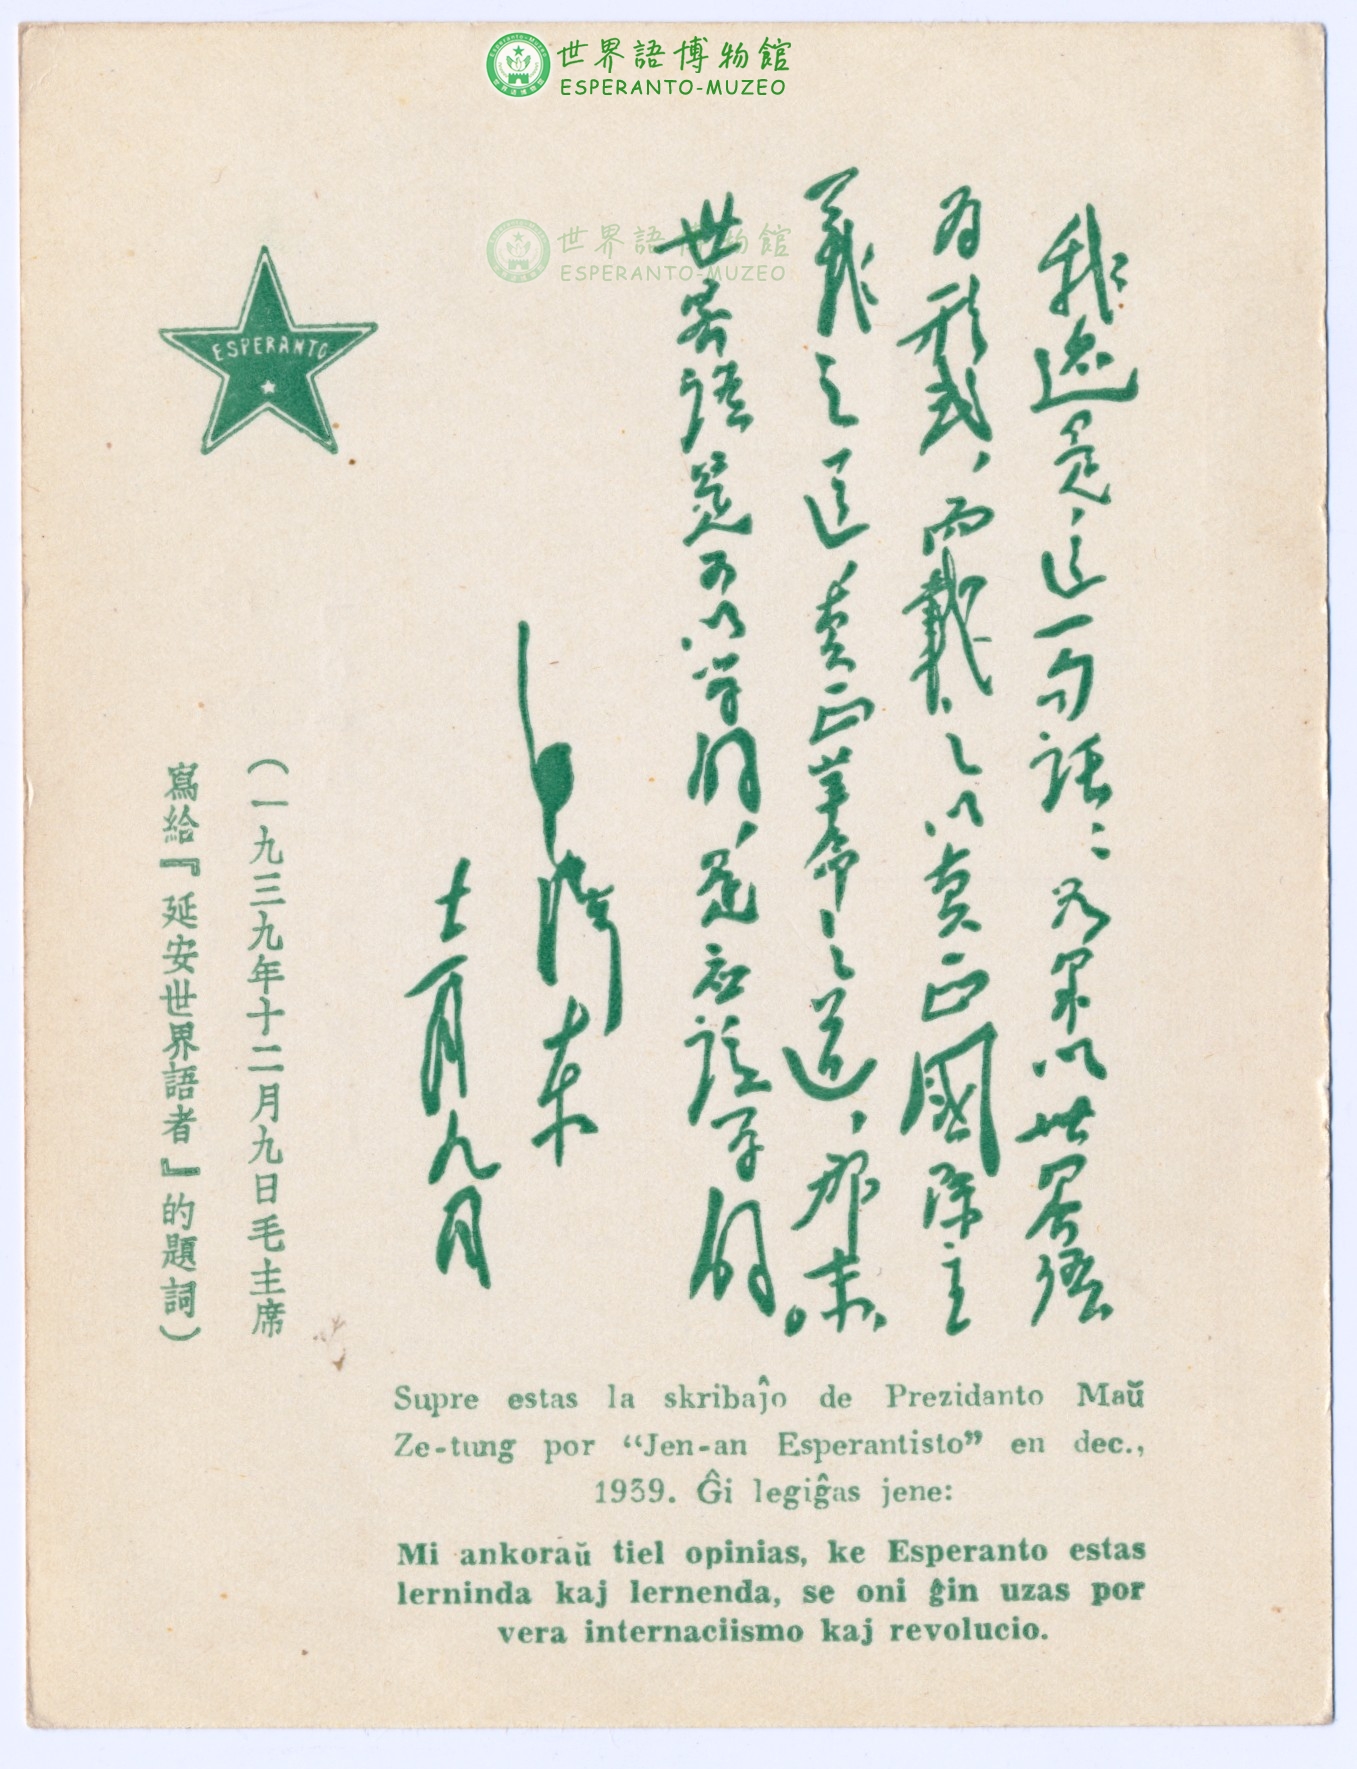 世界語博物館
ESPERANTO-MUZEO
世界語博物館
ESPERANTO-MUZEO
ESPERANTO
我還是這一句話：如果以世界語
為形式，而載之以真正國際主
義之道，真正革命之道，那末，
世界語是可以學的，是應該學的。
毛澤東
十二月九日
（一九三九年十二月九日毛主席
寫給『延安世界語者』的題詞）
Supre estas la skribaĵo de Prezidanto Maŭ
Ze-tung por “Jen-an Esperantisto” en dec.,
1939. Ĝi legiĝas jene:
Mi ankoraŭ tiel opinias, ke Esperanto estas
lerninda kaj lernenda, se oni ĝin uzas por
vera internaciismo kaj revolucio.